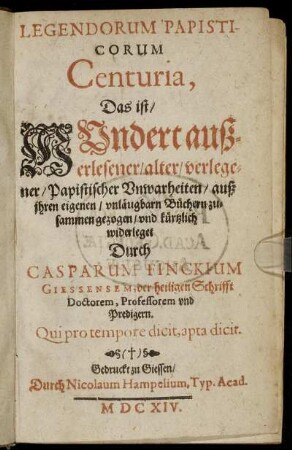 LEGENDORUM PAPISTI-
CORUM
Centuria,
Das ist/
Hundert auß-
erlesener/alter/verlege-
ner/Papistischer Vnwarheiten/auß
ihren eigenen/vnläugbarn Büchern zu-
sammen gezogen/vnd kürtzlich
widerleget
Durch
CASPARUM FINCKIUM
GIESSENSEM, der heiligen Schrifft
Doctorem, Professorem vnd
Predigern.
Qui pro tempore dicit, apta dicit.
(†)
Gedruckt zu Giessen/
Durch Nicolaum Hampelium, Typ. Acad.
M DC XIV.